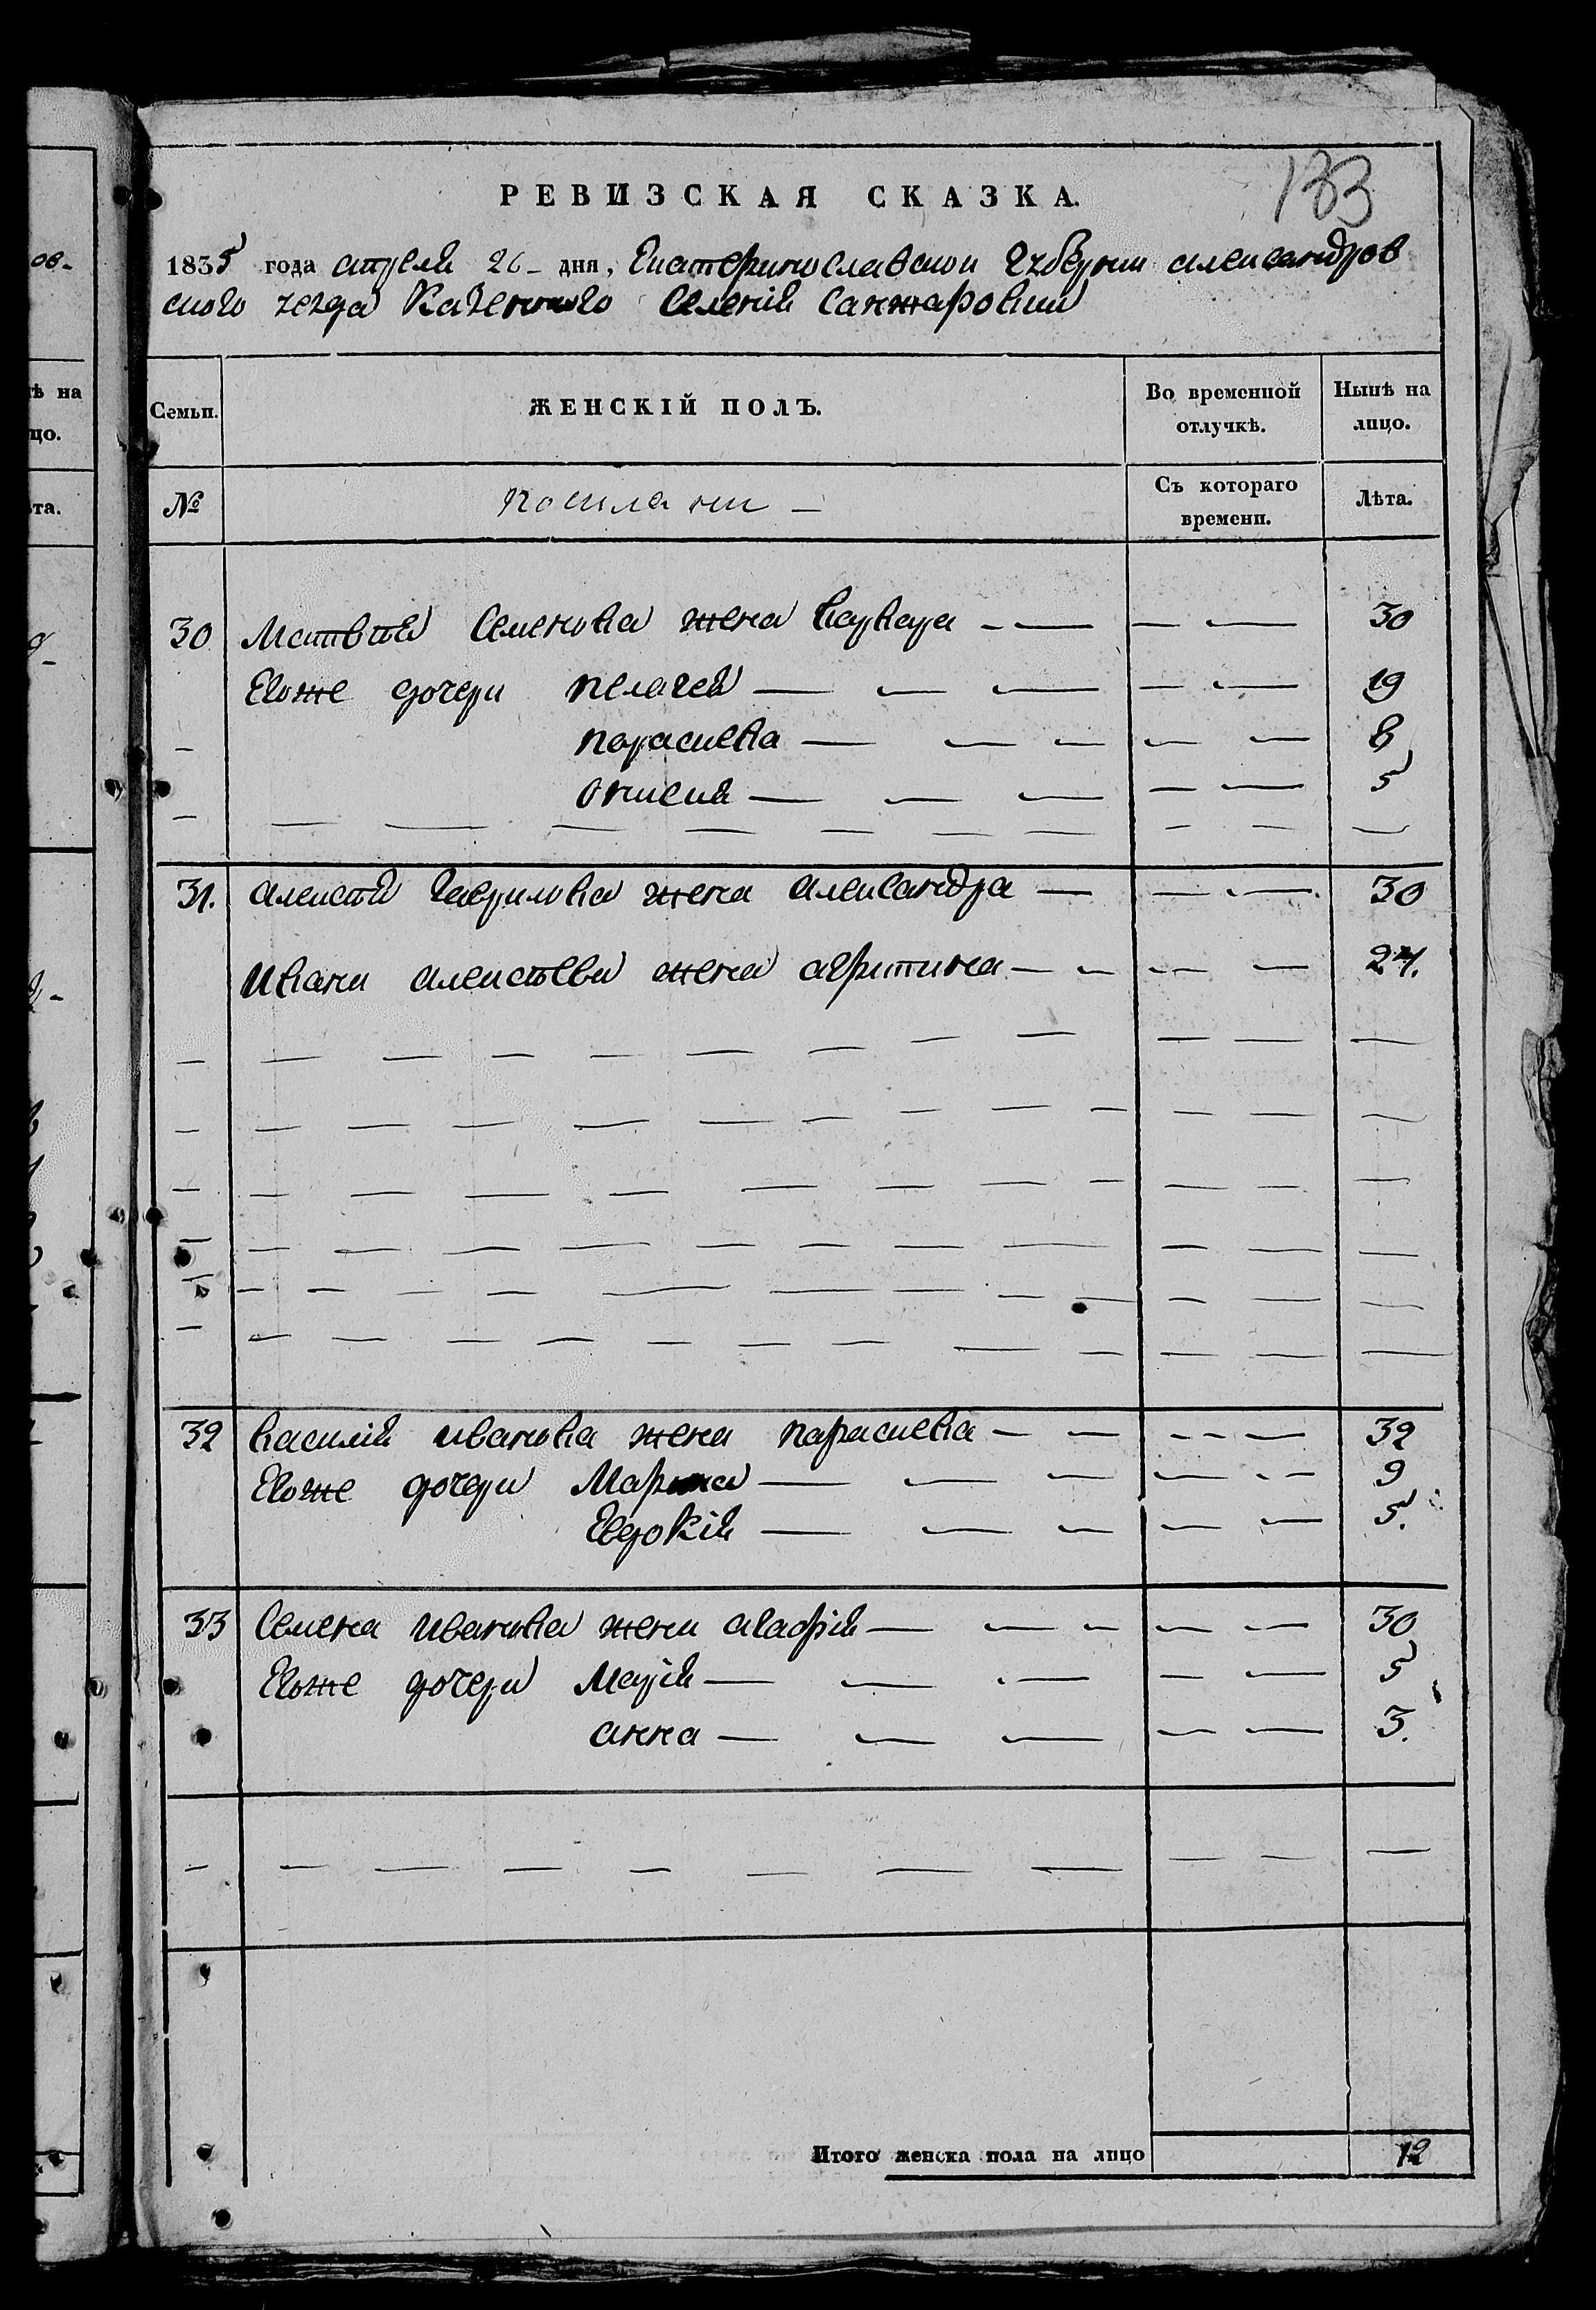 133
РЕВИЗСКАЯ СКАЗКА.
1835 года апреля 26 дня, Екатеринославской Губернии александров
ского уезда Казенного Селенія Санжаровки
Семьи. ЖЕНСКІЙ ПОЛЪ. Во временной отлучкѣ. Нынѣ на лицо.
№ Съ котораго времени. Лѣта.
30 Матвѣя Семенова жена варвара 30
Егоже дочери пелагея 19
парасиева 8
онисия 5
31. алексѣя Гаврилова жена александра 30
ивана алексѣева жена агрипина 24.
32 василія иванова жена парасиева 32
Егоже дочери Марина 9
Евдокія 5.
33 Семена иванова жена агафія 30
Егоже дочери Марія 5
анна 3.
Итого женска пола на лицо 12